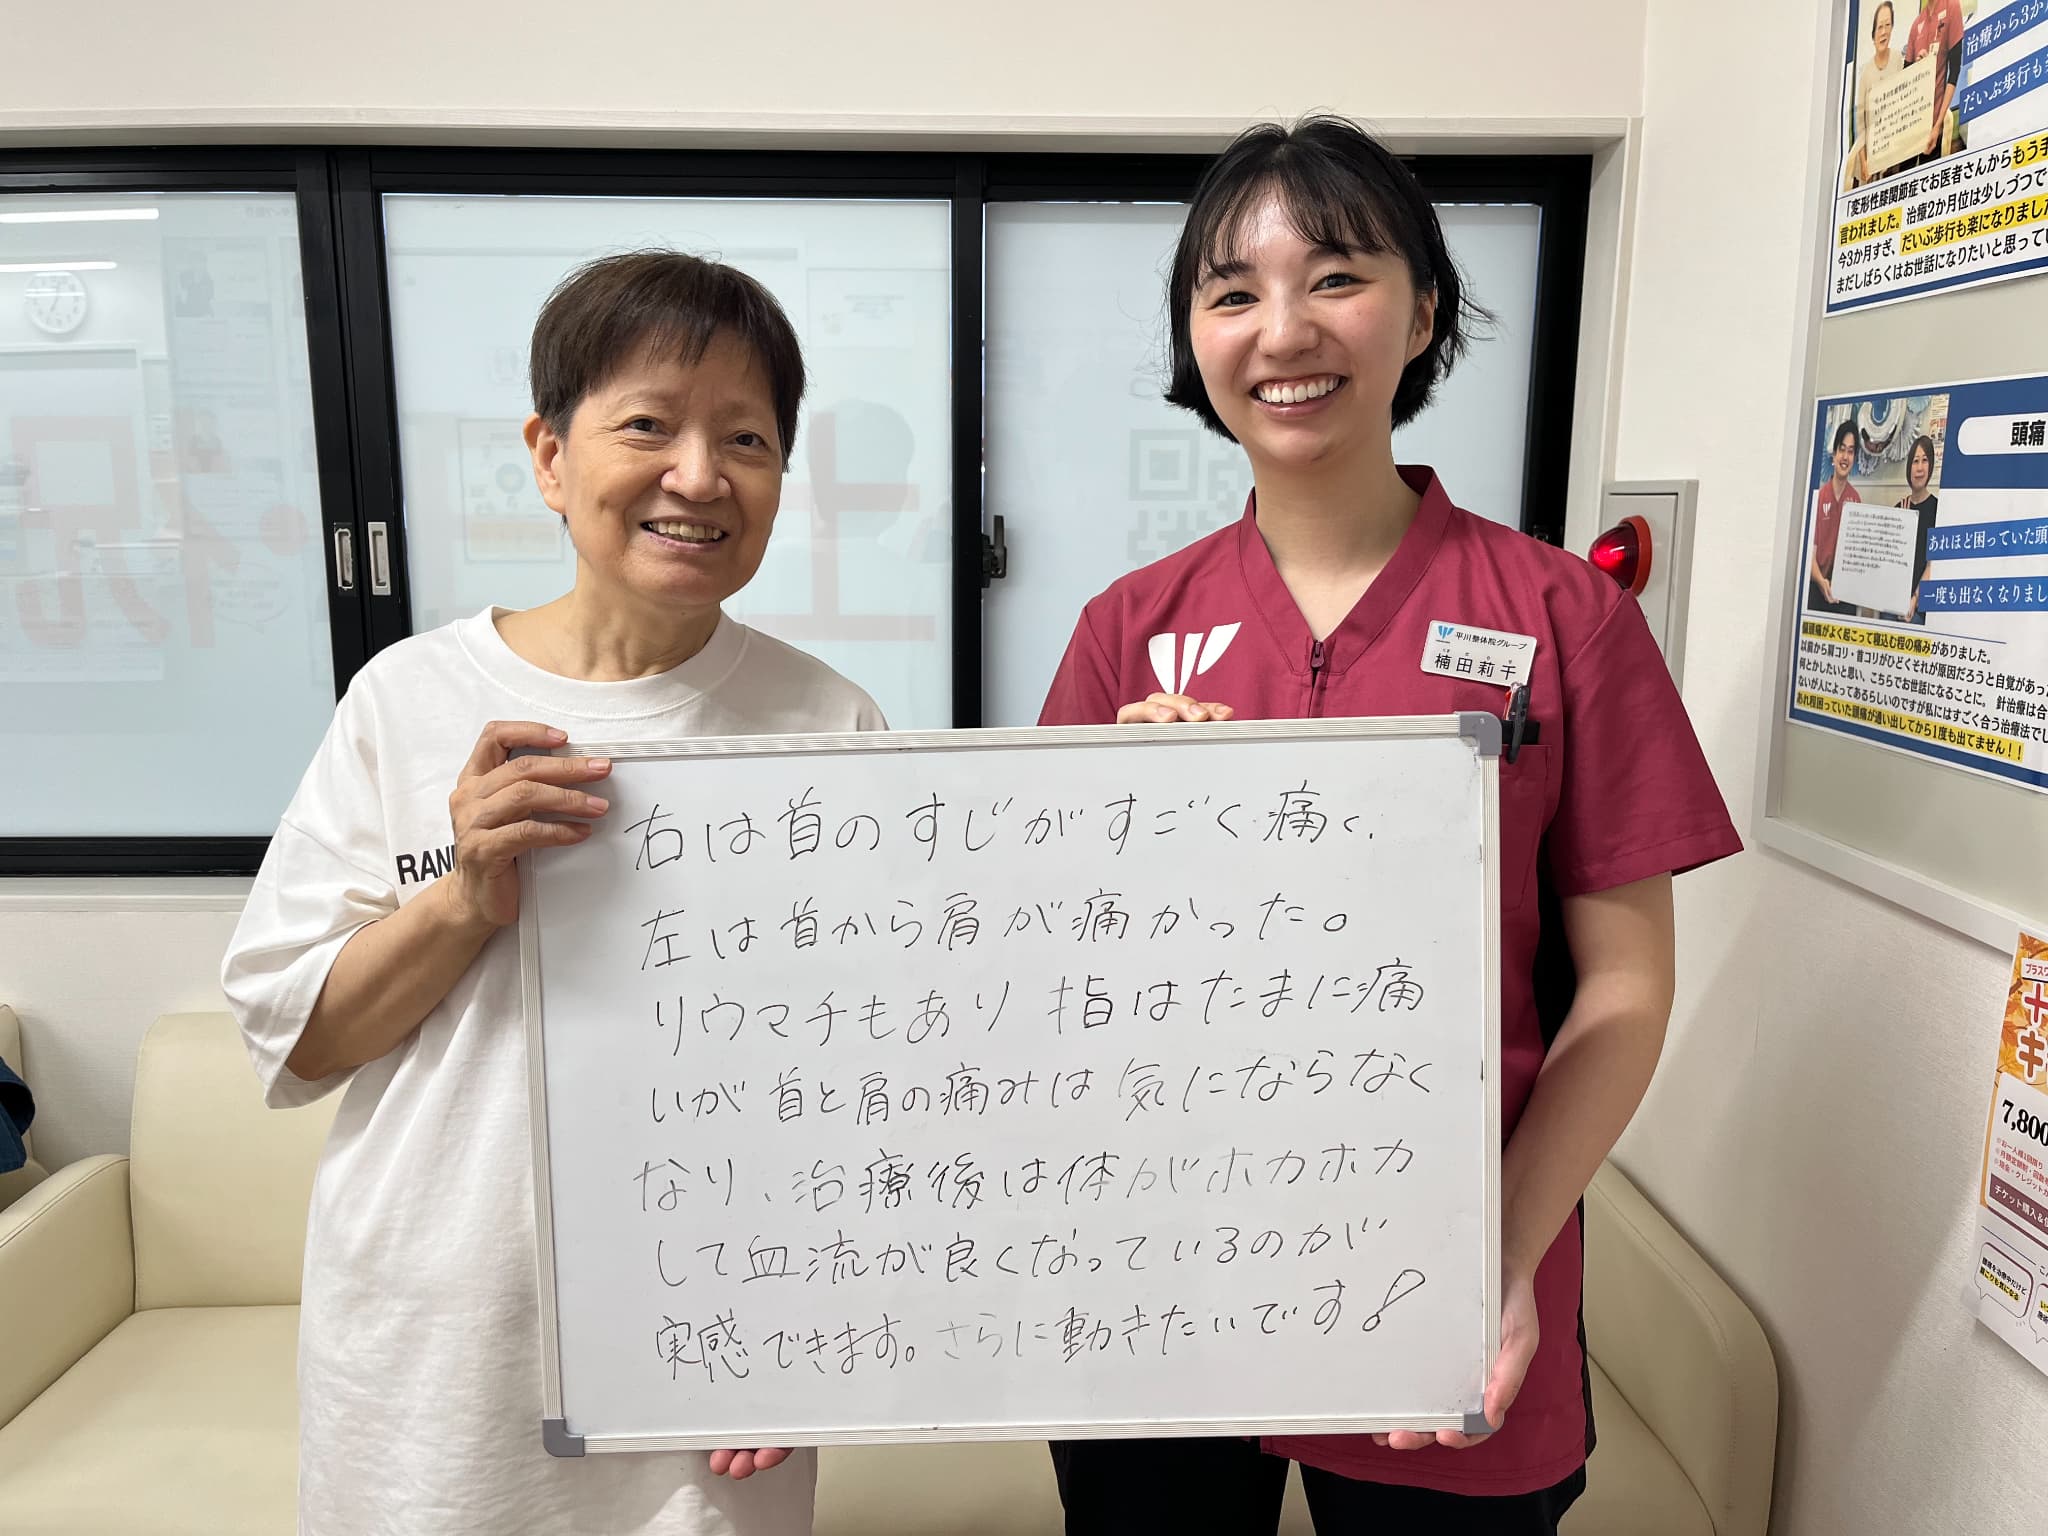 右は首のすじがすごく痛く、
左は首から肩が痛かった。
リウマチもあり 指はたまに痛
いが 首と肩の痛みは 気にならなく
なり、治療後は体がホカホカ
して血流が良くなっているのが
実感できます。さらに動きたいです!
RAN
平川整体院グループ
楠田莉千
治療から3か
だいぶ歩行も
「変形性膝関節症でお医者さんからもう手
言われました。治療2か月位は少しづつで
今3か月すぎ、だいぶ歩行も楽になりました
まだしばらくはお世話になりたいと思ってい
頭痛
あれほど困っていた頭
一度も出なくなりまし
偏頭痛がよく起こって寝込む程の痛みがありました。
以前から肩コリ・首コリがひどくそれが原因だろうと自覚があった
何とかしたいと思い、こちらでお世話になることに。 針治療は合
ないが人によってあるらしいのですが私にはすごく合う治療法でし
あれ程困っていた頭痛が通い出してから1度も出てません!!
プラスワ
キ
7,800
チケット購入&